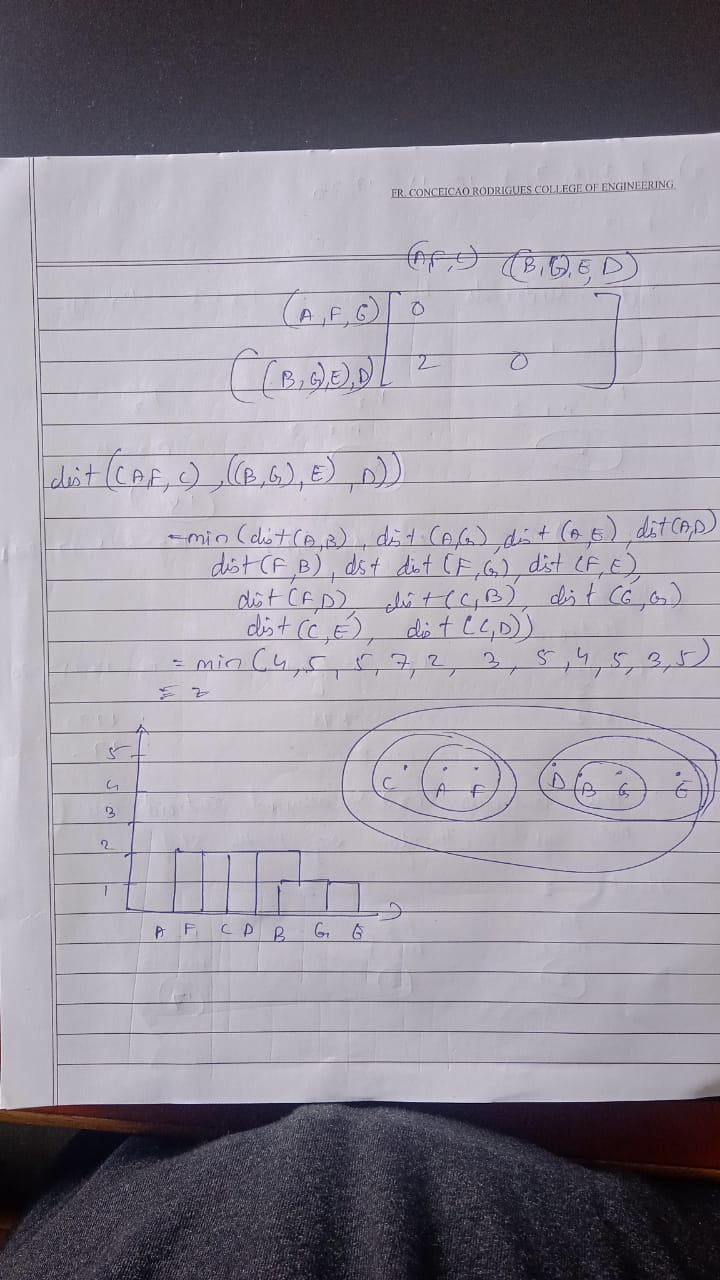 FR. CONCEICAO RODRIGUES COLLEGE OF ENGINEERING
(AF, C) ((B, G), E, D)
(A, F, G) [ 0 ]
((B, G), E), D) 2 0
dist ((AF, C), ((B, G), E), D))
= min (dist (A,B), dist (A,G), dist (A,E), dist (A,D)
dist (F,B), dst dist (F,G), dist (F,E),
dist (F,D), dist (C,B), dist (C,G)
dist (C,E), dist (C,D))
= min (4, 5, 5, 7, 2, 3, 5, 4, 5, 3, 5)
= 2
5
4
3
2
1
C A F D B G E
A F C D B G E